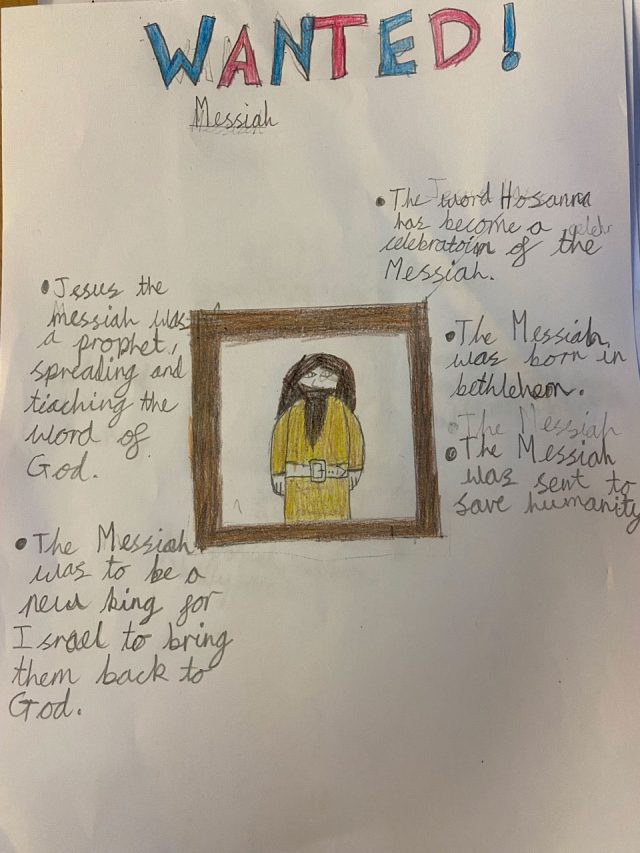 WANTED!
Messiah
• The word Hosanna
has become a
celebratoin of the
Messiah.
• Jesus the
messiah was
a prophet,
spreading and
teaching the
word of
God.
• The Messiah
was born in
bethlehem.
The Messiah
• The Messiah
was sent to
save humanity
• The Messiah
was to be a
new king for
Israel to bring
them back to
God.